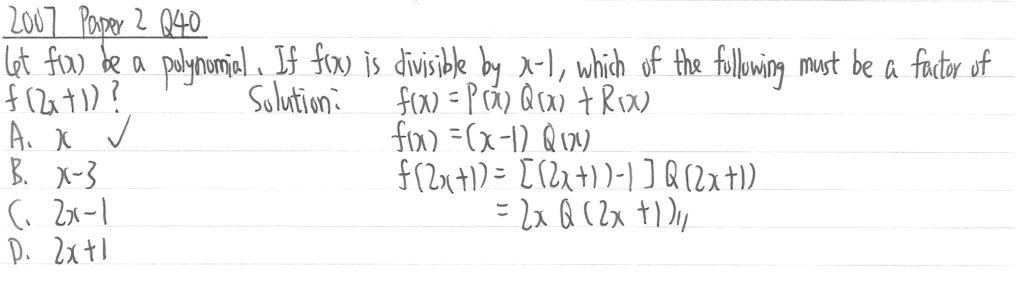 2007 Paper 2 Q40
Let f(x) be a polynomial. If f(x) is divisible by x-1, which of the following must be a factor of
f(2x+1)? Solution: f(x) = P(x) Q(x) + R(x)
A. x ✓ f(x) = (x-1) Q(x)
B. x-3 f(2x+1) = [(2x+1)-1] Q(2x+1)
C. 2x-1 = 2x Q(2x+1)//
D. 2x+1